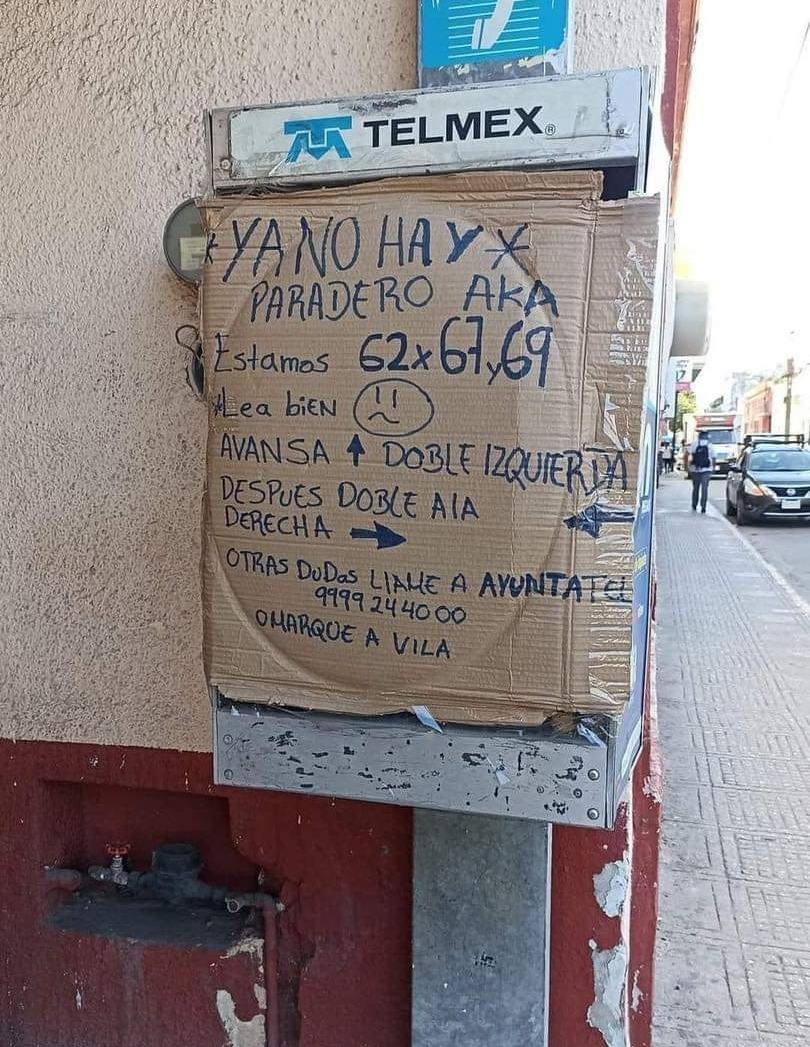 TELMEX®
*YA NO HAY*
PARADERO AKA
Estamos 62x67y69
*Lea biEN
AVANSA ↑ DOBLE IZQUIERDA
DESPUES DOBLE AlA ←
DERECHA →
OTRAS DuDas LlAME A AYUNTATEL
9999244000
OMARQUE A VILA